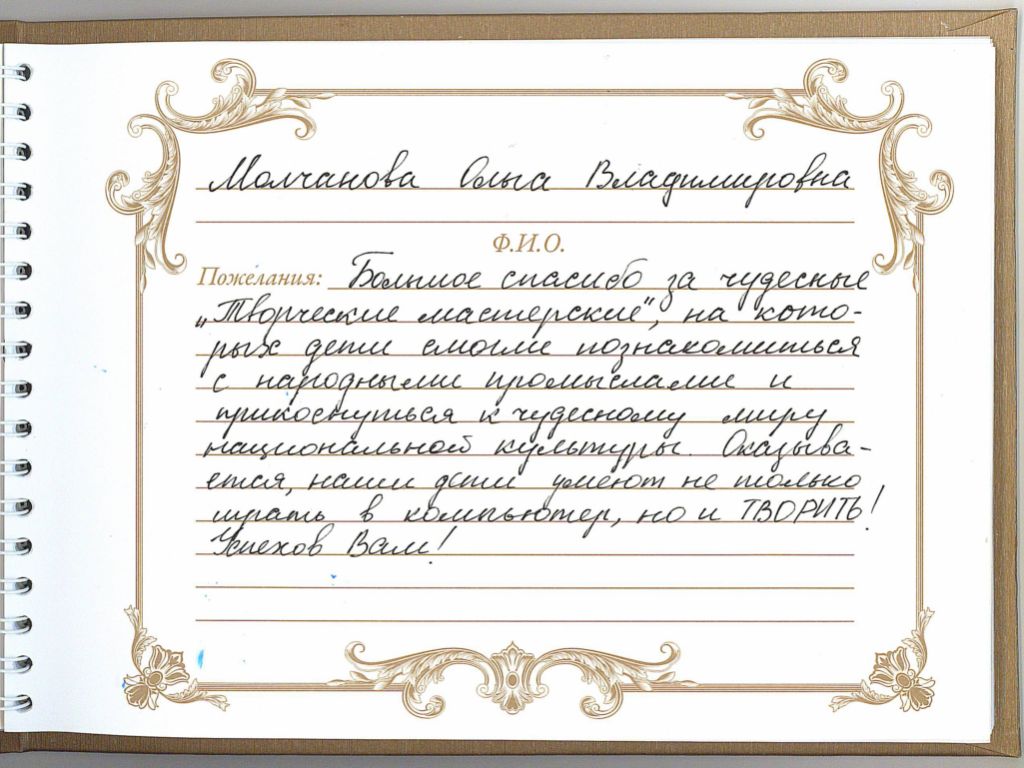 Молчанова Ольга Владимировна
Ф.И.О.
Пожелания: Большое спасибо за чудесные
„Творческие мастерские", на кото-
рых дети смогли познакомиться
с народными промыслами и
прикоснуться к чудесному миру
национальной культуры. Оказыва-
ется, наши дети умеют не только
играть в компьютер, но и ТВОРИТЬ!
Успехов Вам!